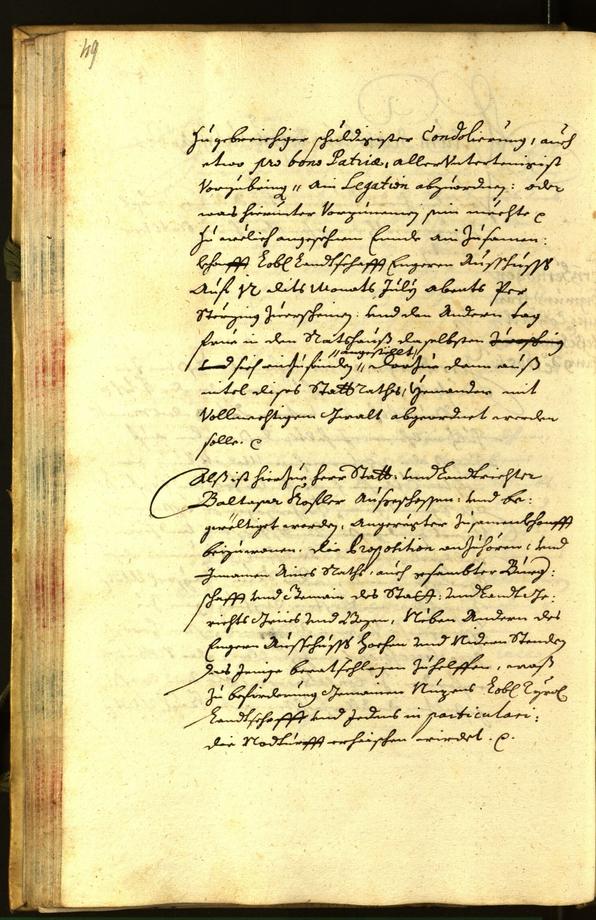 49
zu gebreichiger schuldigister Condolierung, auch
etwo pro bono Patriæ, allervnterteinigist
Vorzubring(en) ain Legation abzuordn(en): oder
was hierunter Vorzunemen sein möchte
Zu welich angesehnem Ennde ain Zusamen:
khonfft Lobl: Landtschafft Engern Ausschuss
Auf 12 dits Monats July abents Per
Sterzing zuerscheinen: vnd den Andern tag
frue in dem Rathshauß daselbsten
angestellt
vnd sich einzufinden, Darzue dann auß
mitel dises Stattraths, yemander mit
Vollmechtigem Gwalt abgeordnet werden
solle.
Alß ist hierzue Herr Statt: vnd Landtrichter
Baltasar Roßler Außgeschossen: vnd be:
gwöltiget worden, Angeregter Zusamenkhonfft
beizuwonen. die Proposition anzuhören: vnd
Innamen Aines Raths, auch gesambter Burg:
schafft vnd Gemain der Statt: vnd Landtge:
richts Gries vnd Bozen, Neben Andern des
Engern Ausschuss hochen vnd Nidern Stenden
das Jenige beratschlagen zuhelffen, waß
zu befürderung Gemainen Nuzens Lobl: Tyrol:
Landtschafft vnd Jedes in particulari:
die Nodturfft erhaischen wirdet.